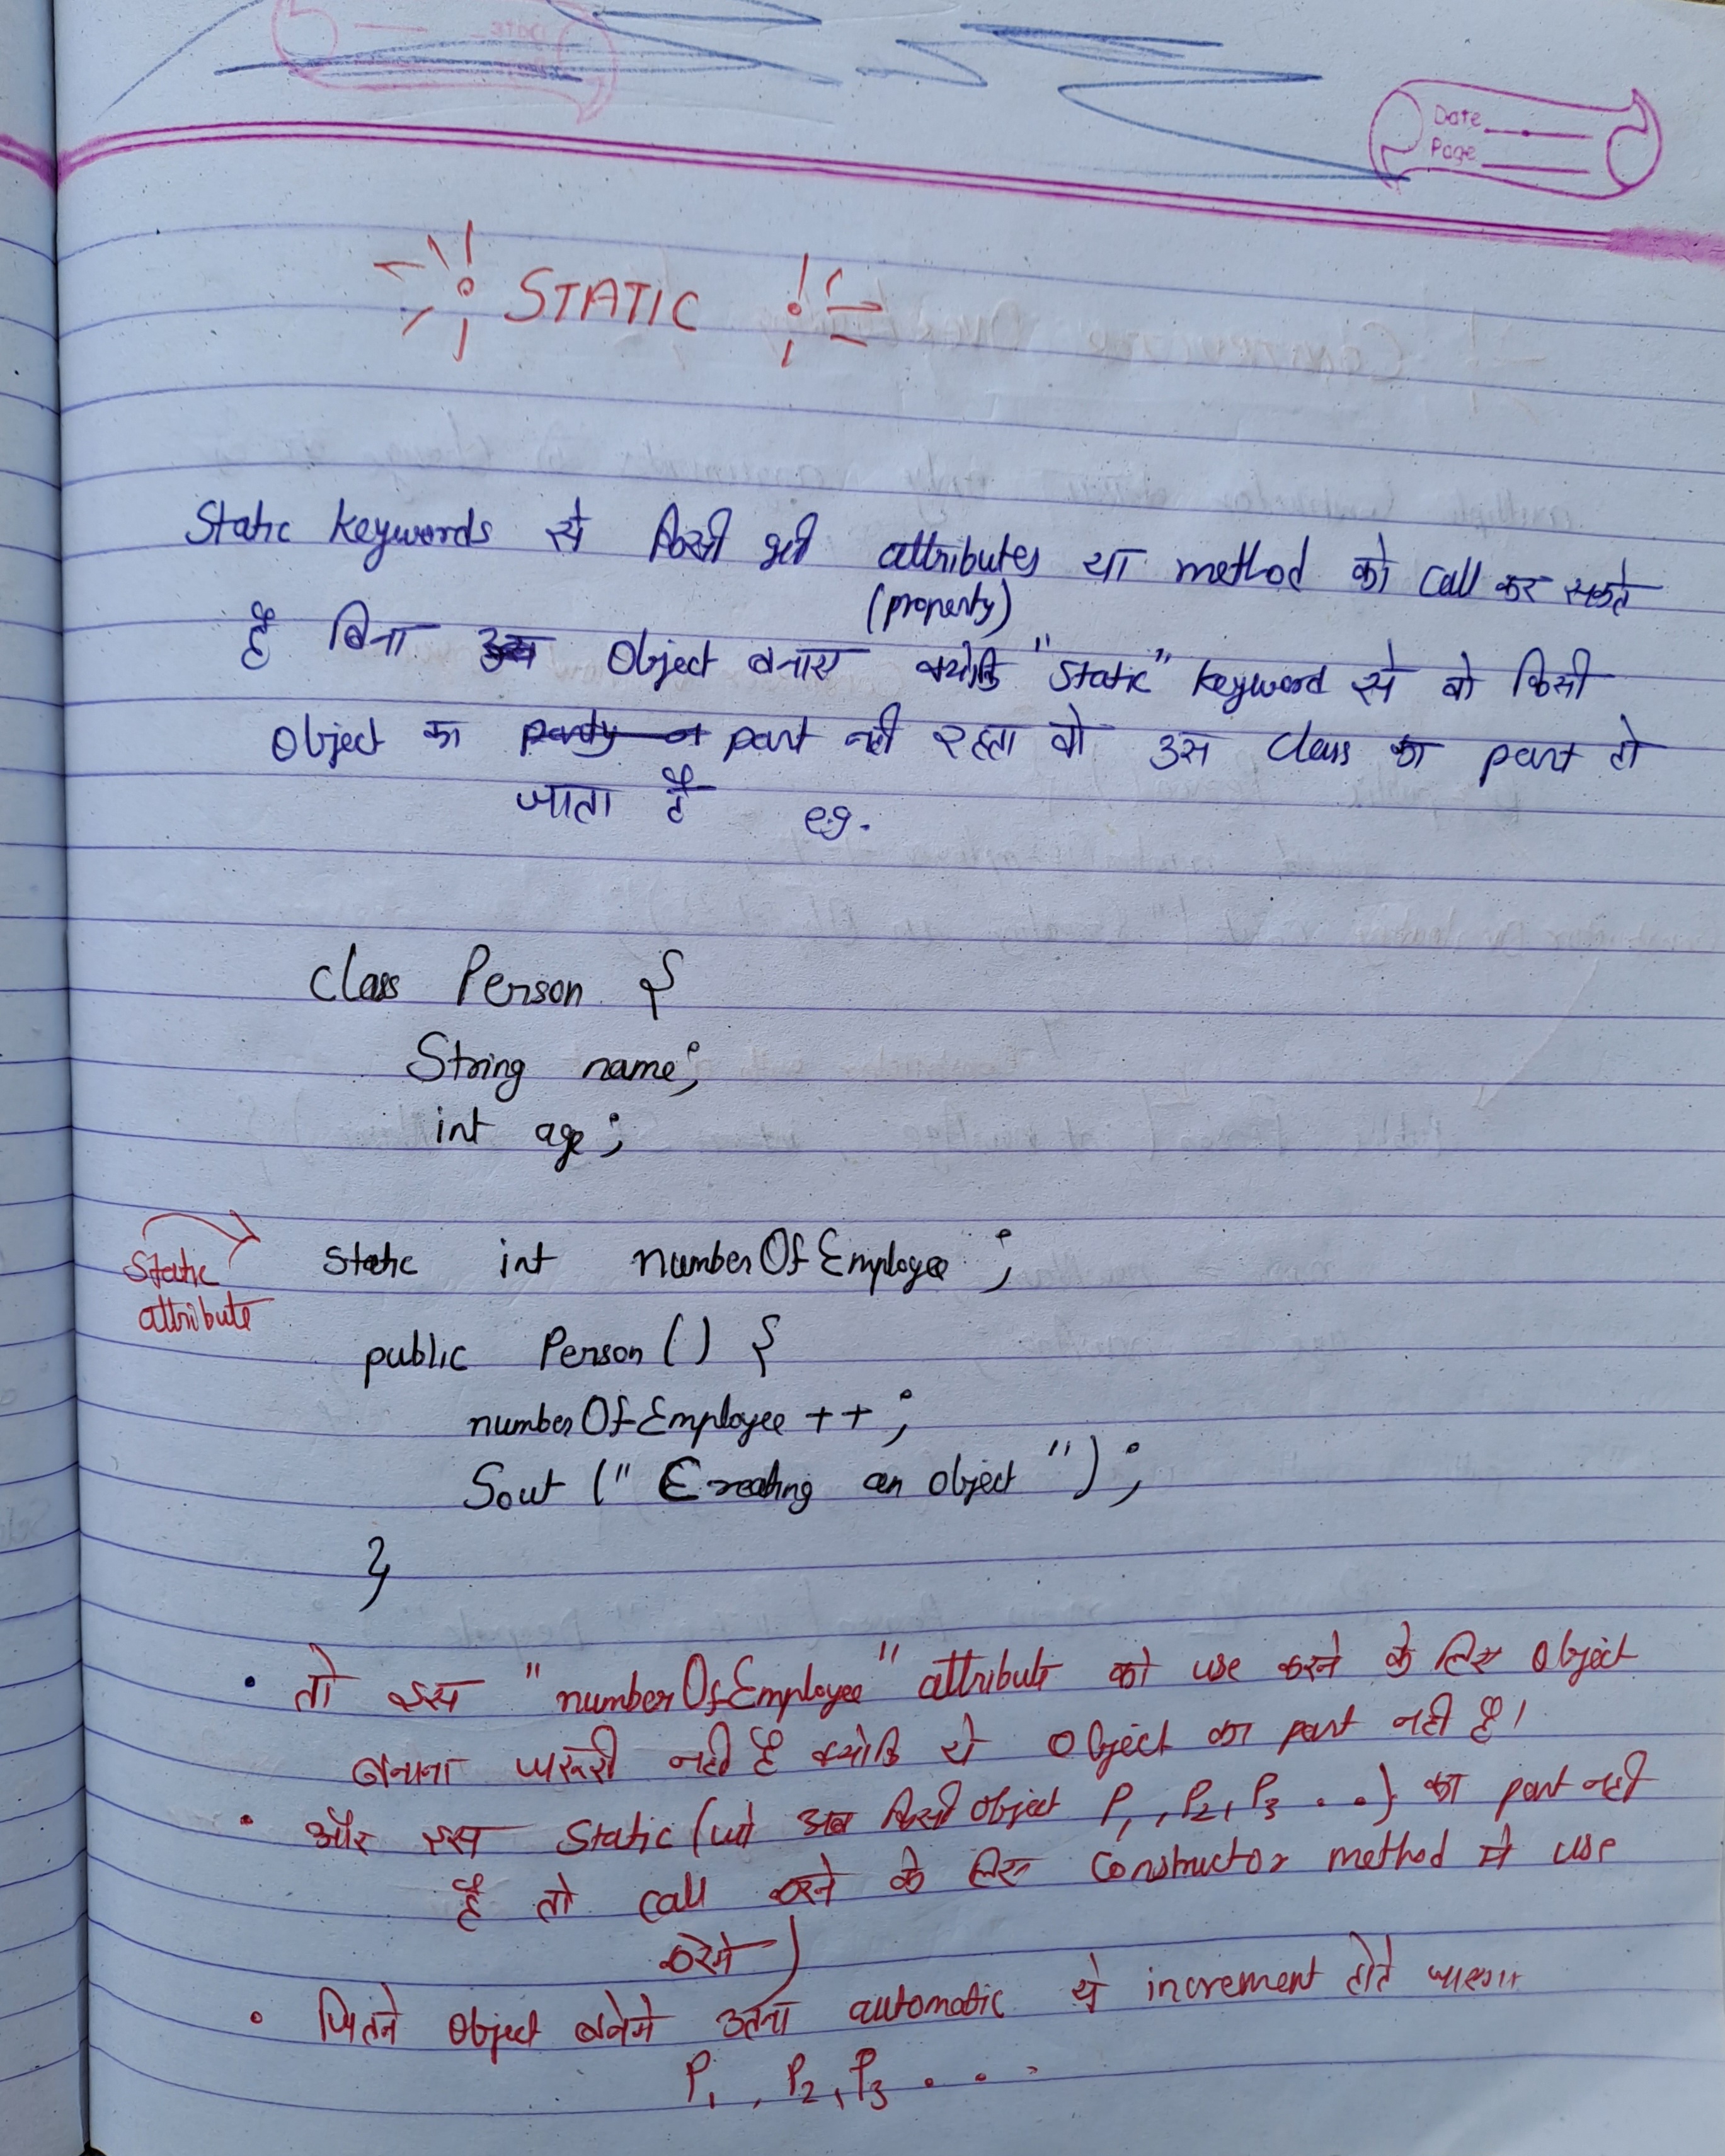 Date
Page
STATIC
Static keywords से किसी भी attributes या method को call कर सकते
(property)
है बिना object बनाए क्योंकि "Static" keyword से वो किसी
object का part नही रहता वो उस class का part हो
जाता है e.g.
class Person {
String name;
int age;
Static
attribute
static int numberOfEmployee ;
public Person () {
numberOfEmployee ++ ;
Sout (" Creating an object ") ;
}
• तो इस "numberOfEmployee" attribute को use करने के लिए object
बनाना जरूरी नही है क्योंकि ये object का part नही है।
• और इस static (जो अब किसी object P1, P2, P3 . . .) का part नही
है तो call करने के लिए constructor method मे use
करेगे)
• जितने object बनेगे उतना automatic ये increment होते जाएगा
P1, P2, P3 . . .